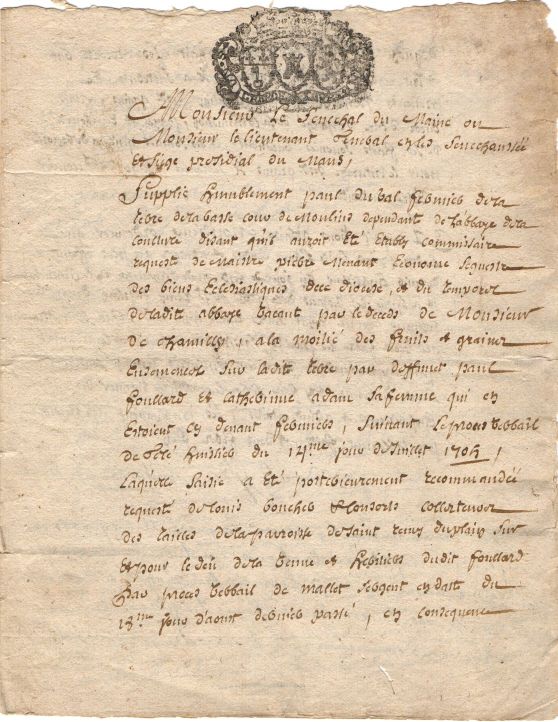 Monsieur Le Senechal du Maine ou
Monsieur le lieutenant General en la Senechaussée
et siege presidial du Mans,
Supplie humblement paul du val fermier de la
terre de la basse cour de Moulins dependant de l'abbaye de la
Couture disant qu'il auroit été étably commissaire
request de Maistre pierre Menant Econome sequestre
des biens Ecclesiastiques dece diocese, et du temporel
de ladite abbaye vacant par le deceds de Monsieur
de chamilly, a la moitié des fruits et graines
Ensemencés sur ladite terre par deffunct paul
foullard et Catherinne adam sa femme qui en
Estoient cy devant fermiers, suivant le proces verbail
de huissier du 14me jour de Juillet 1704,
Laquelle saisie a été posterieurement recommandée
request de louis boucher & Consorts collecteurs
des tailles de la parroisse de saint remy du plain sur
et pour le deu de la veuve et heritiers dudit foullard
par proces verbail de mallet sergent en datte du
18me jour d'aoust dernier passé, en consequence